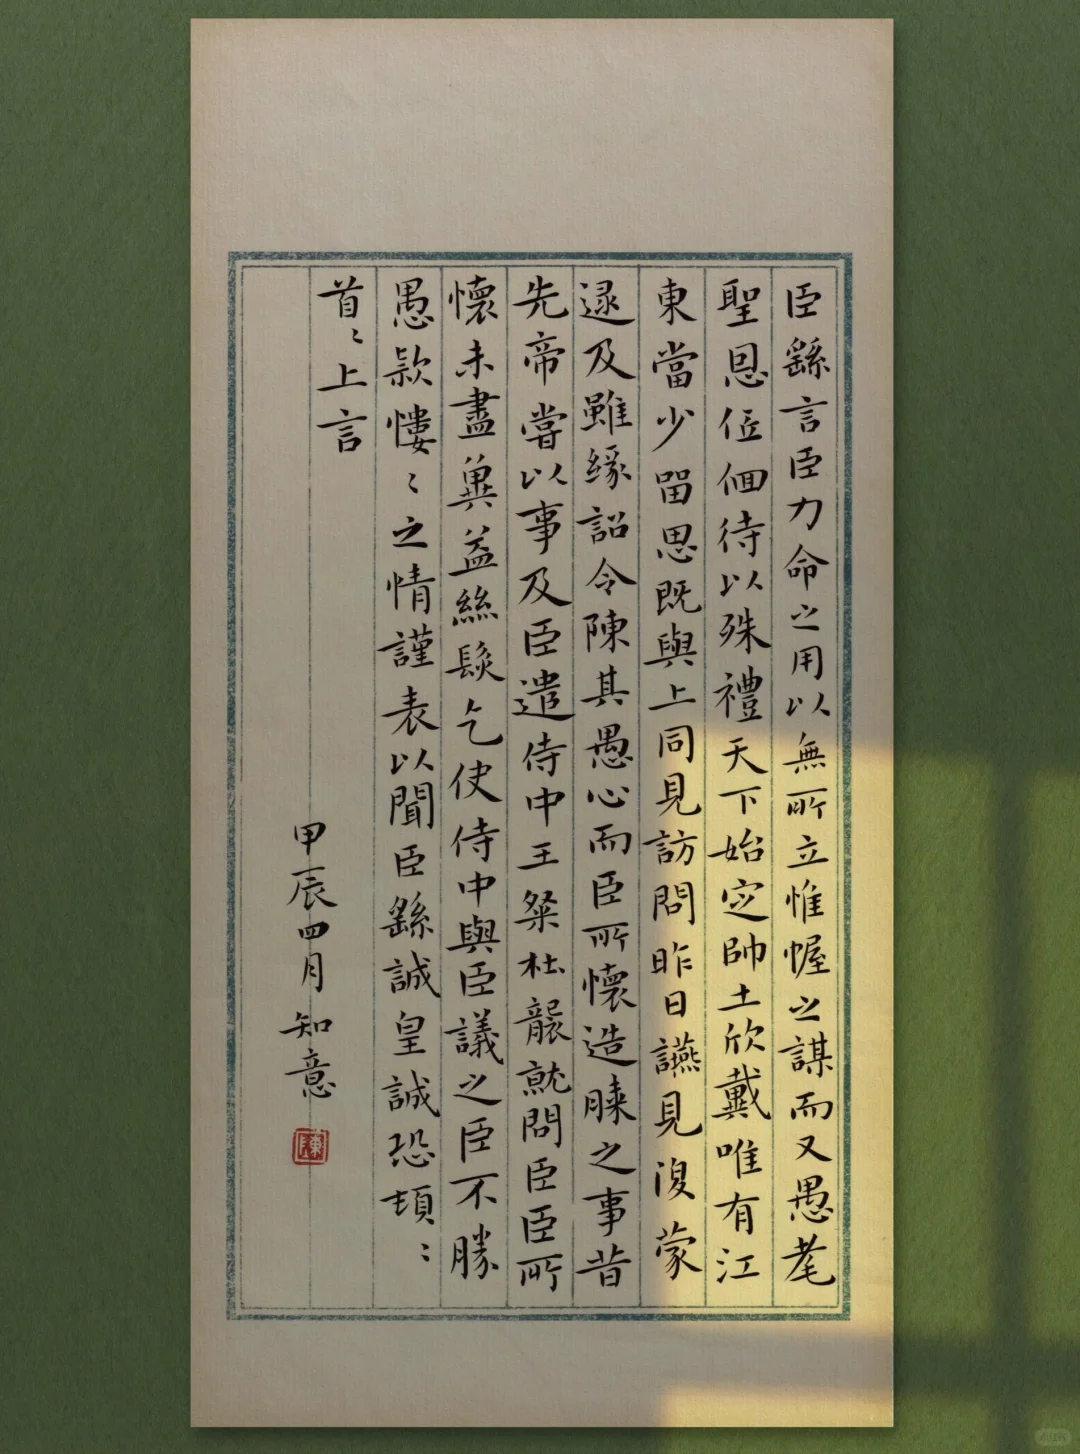 臣繇言臣力命之用以無所立惟幄之謀而又愚耄
聖恩低佪待以殊禮天下始定帥土欣戴唯有江
東當少留思既與上同見訪問昨日讌見復蒙
逮及雖緣詔令陳其愚心而臣所懷造膝之事昔
先帝嘗以事及臣遣侍中王粲杜襲就問臣臣所
懷未盡冀益絲髮乞使侍中與臣議之臣不勝
愚款慺〻之情謹表以聞臣繇誠皇誠恐頓〻
首〻上言
甲辰四月知意
陳